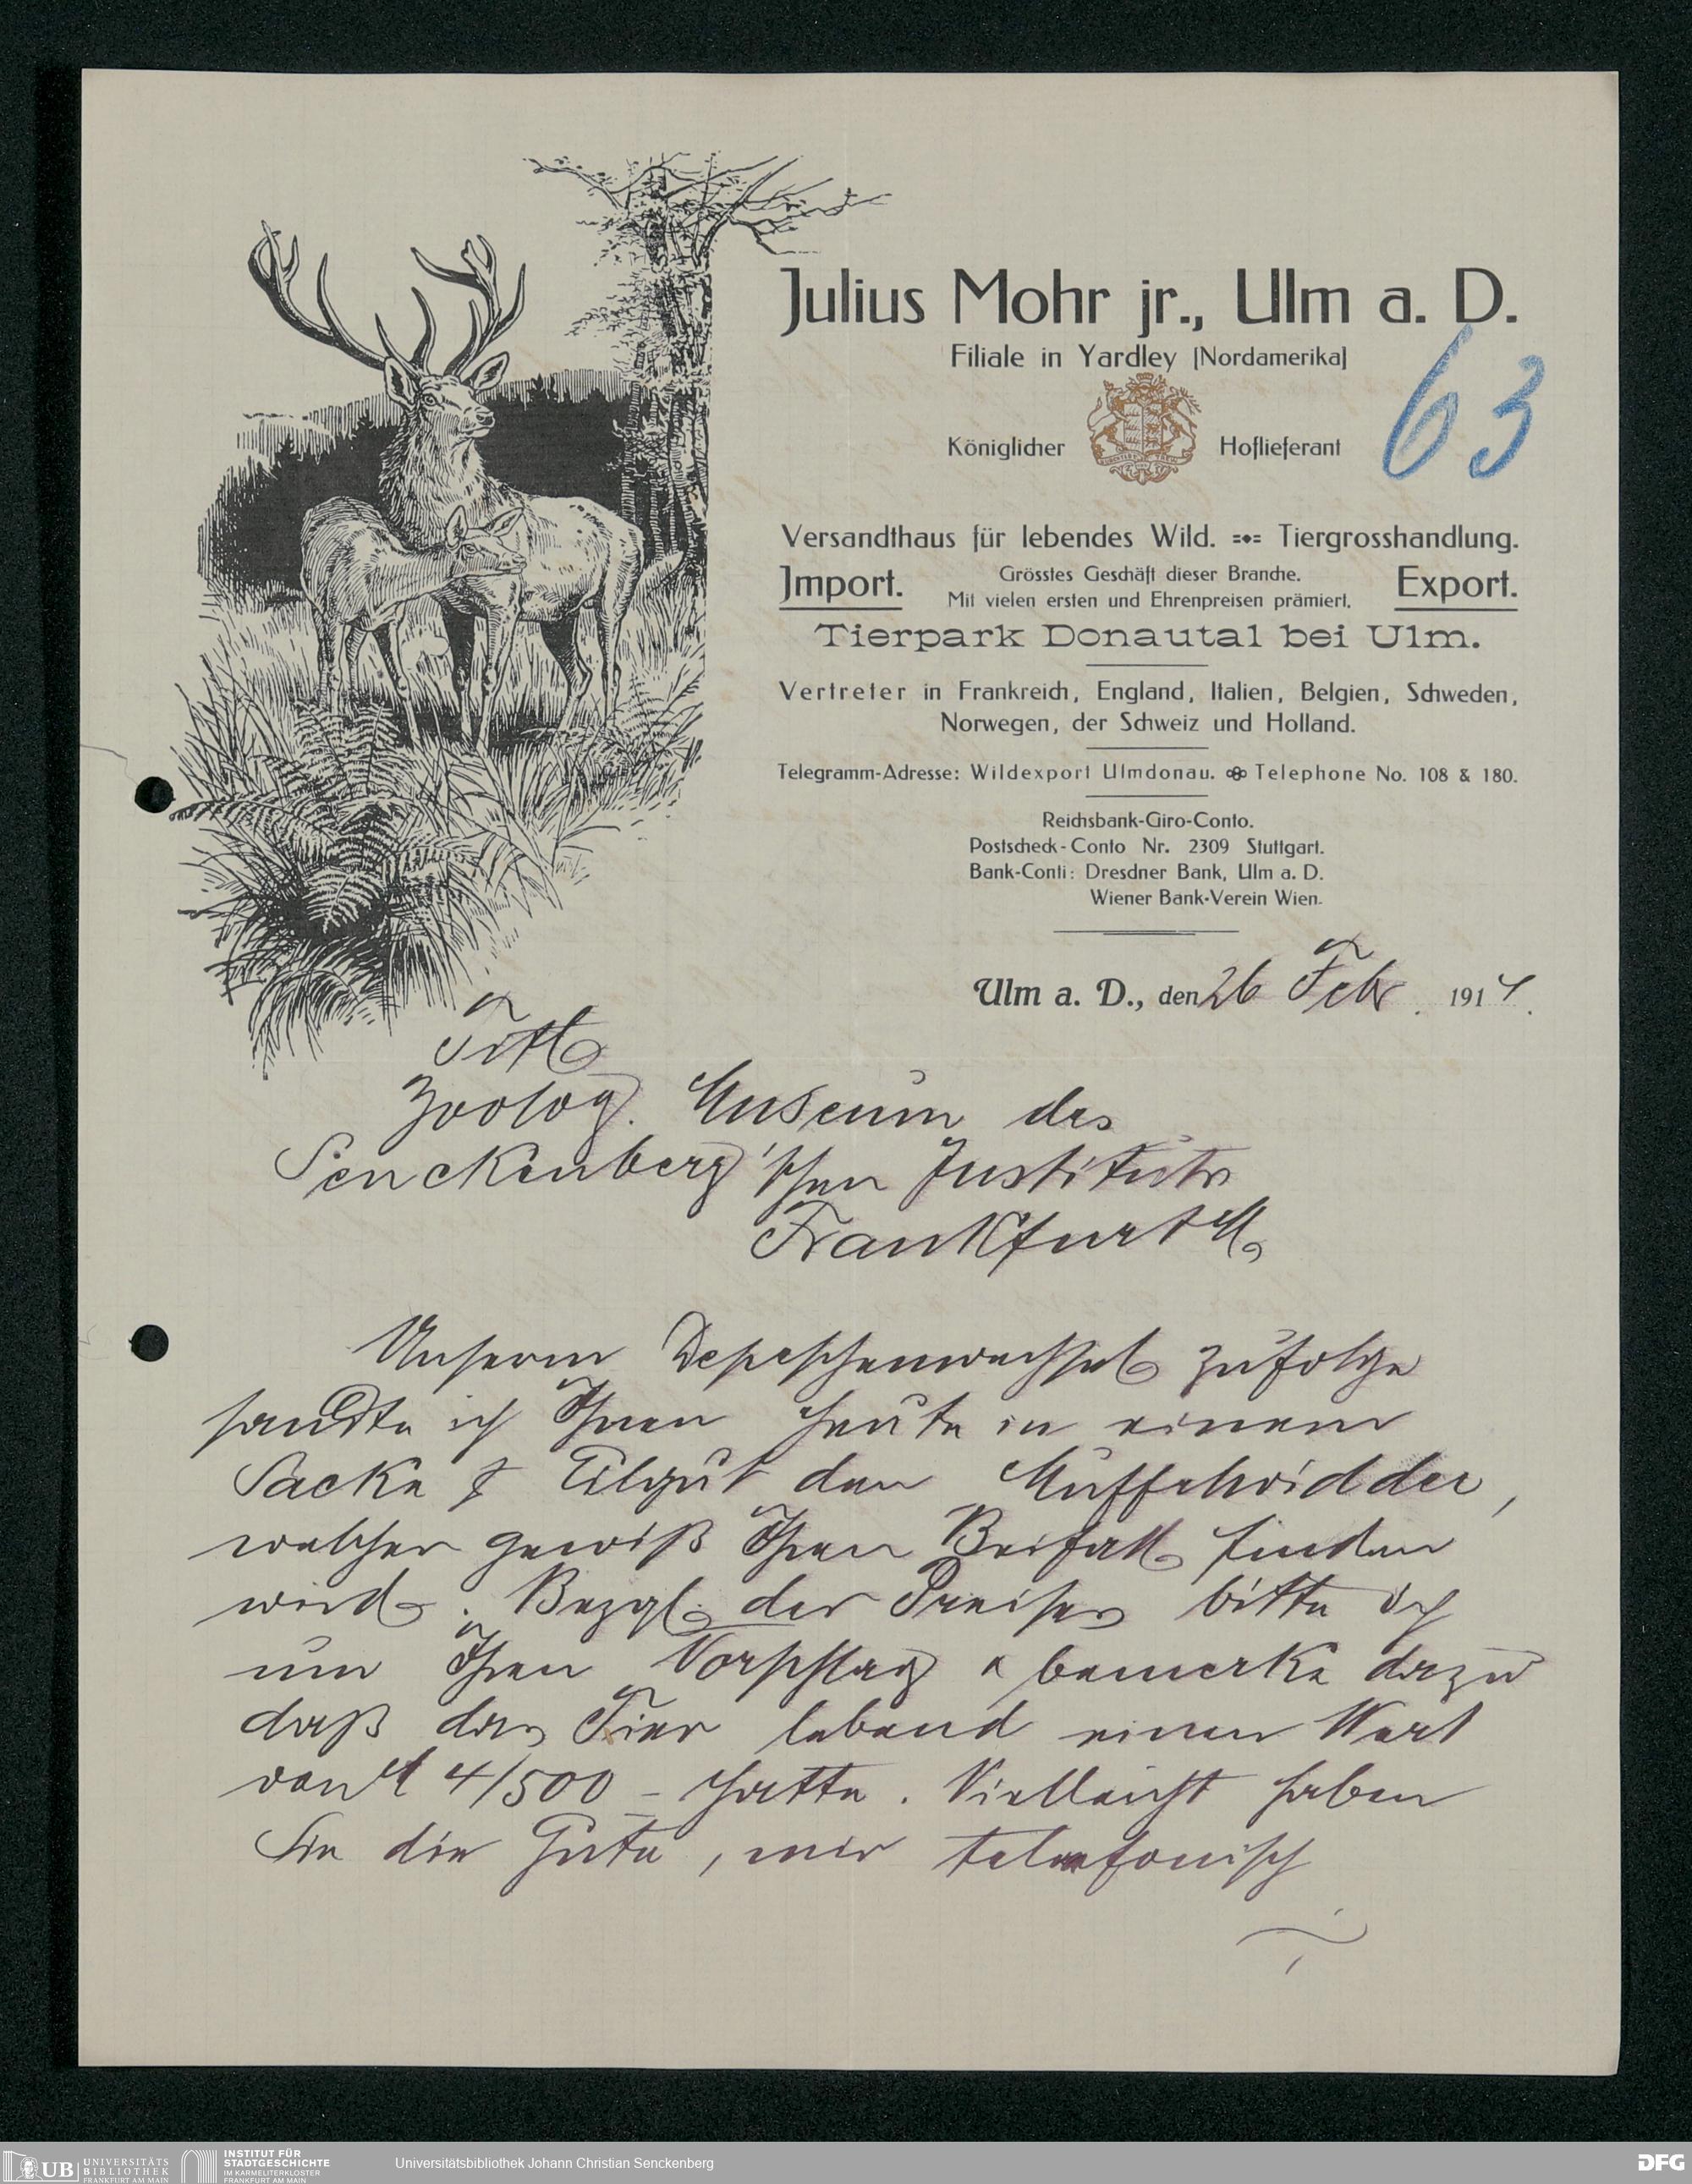 Julius Mohr jr., Ulm a. D.
Filiale in Yardley [Nordamerika]
63
Königlicher Hoflieferant
Versandthaus für lebendes Wild. Tiergrosshandlung.
Import. Grösstes Geschäft dieser Branche. Export.
Mit vielen ersten und Ehrenpreisen prämiert.
Tierpark Donautal bei Ulm.
Vertreter in Frankreich, England, Italien, Belgien, Schweden,
Norwegen, der Schweiz und Holland.
Telegramm-Adresse: Wildexport Ulmdonau. Telephone No. 108 & 180.
Reichsbank-Giro-Conto.
Postscheck-Conto Nr. 2309 Stuttgart.
Bank-Conti: Dresdner Bank, Ulm a. D.
Wiener Bank-Verein Wien.
Ulm a. D., den 26 Febr. 1914.
Titl
Zoolog. Museum des
Senckenberg'schen Instituts
Frankfurt M.
Unserem Depeschenwechsel zufolge
sandte ich Ihnen heute in einem
Sacke Eilgut den Muffelwidder,
welcher gewiß Ihren Beifall finden
wird. Bezgl. des Preises bitte ich
um Ihren Vorschlag & bemerke dazu
daß das Tier lebend einen Wert
von M 4/500 – hatte. Vielleicht haben
Sie die Güte, mir telefonisch
UB UNIVERSITÄTS
BIBLIOTHEK
FRANKFURT AM MAIN
INSTITUT FÜR
STADTGESCHICHTE
IM KARMELITERKLOSTER
FRANKFURT AM MAIN
Universitätsbibliothek Johann Christian Senckenberg
DFG